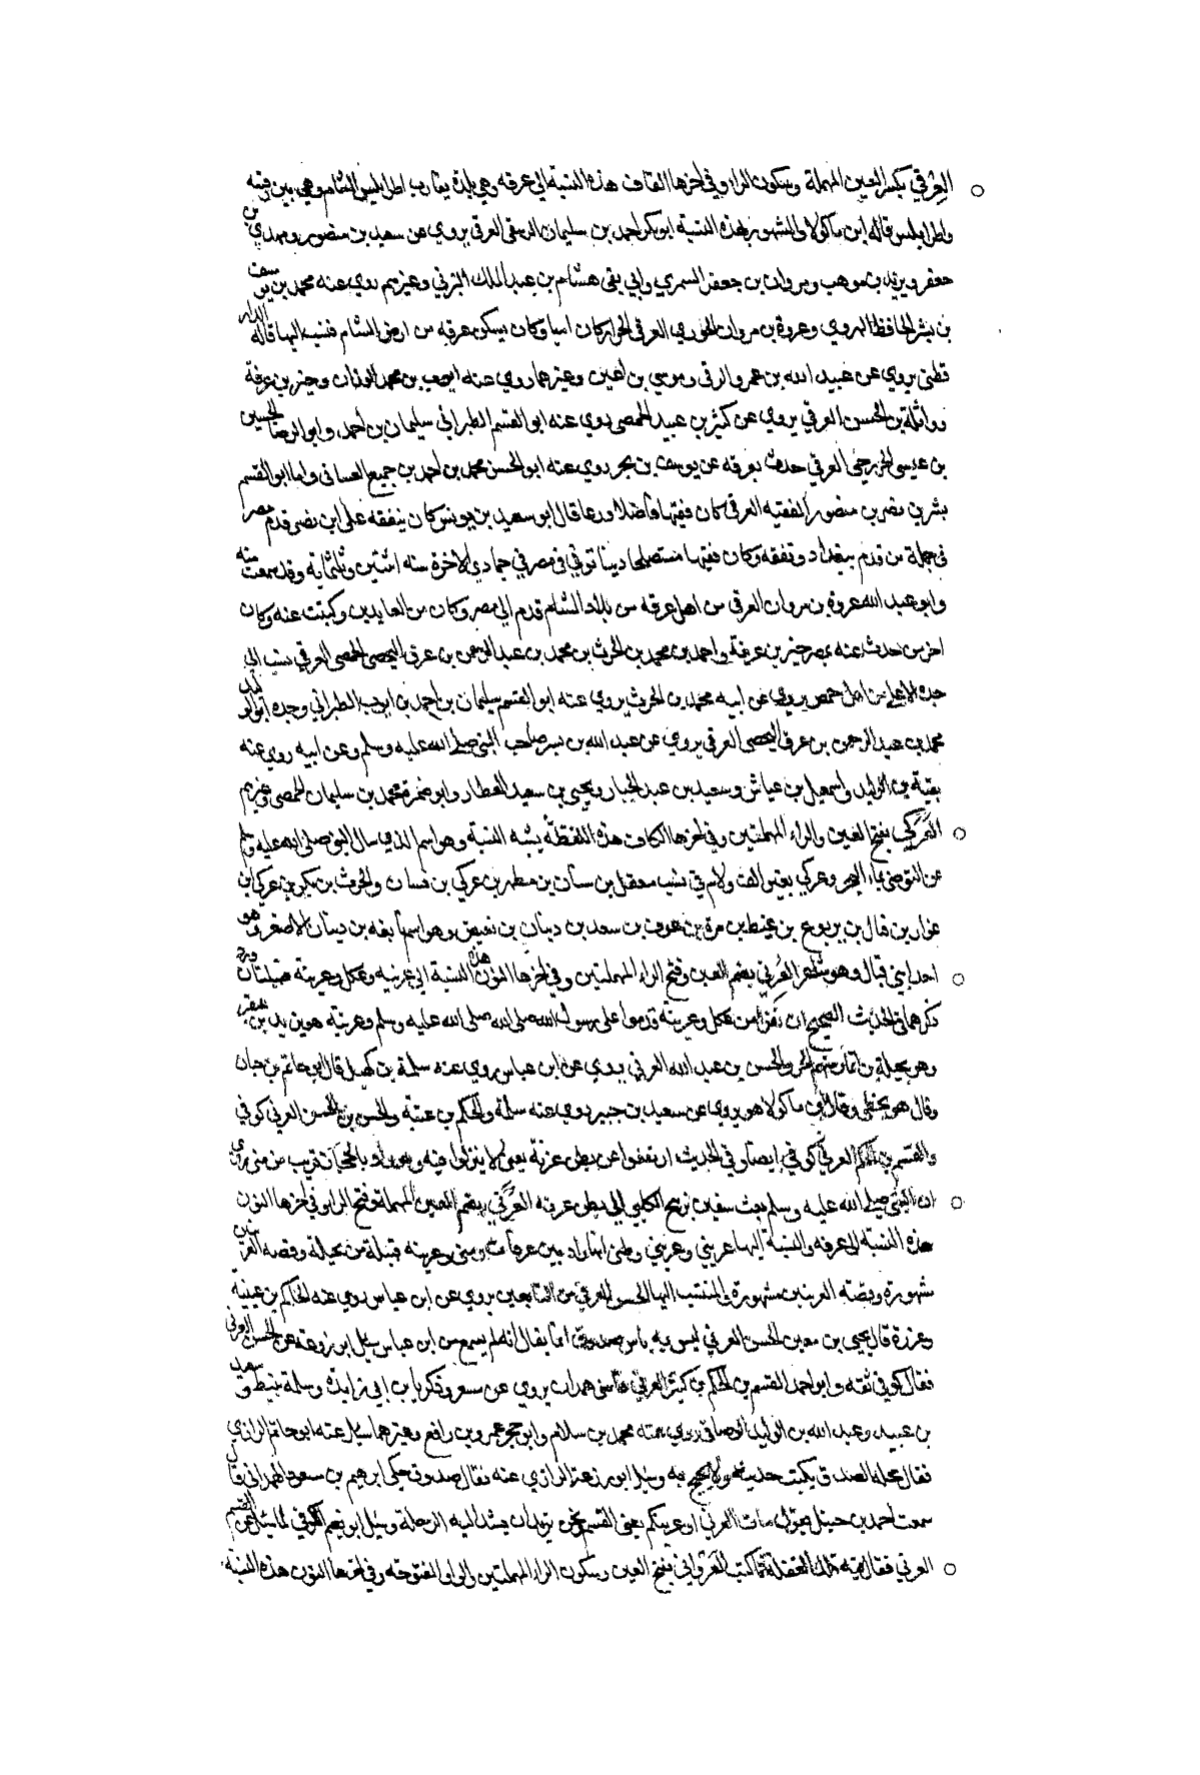 العِرقي بكسر العين المهملة وسكون الراء وفي اخرها القاف هذه النسبة الي عرقه وهي بلدة يقارب اطرابلس الشام وهي بين رفنيه
واطرابلس قاله ابن ماكولا والمشهور بهذه النسبة ابو بكر احمد بن سليمان العرقي يروي عن سعيد بن منصور ومهدي بن
جعفر ويزيد بن موهب ومروان بن جعفر السمري وابي تقي هشام بن عبد الملك اليزني وغيرهم روي عنه محمد بن يوسف
بن بشر الحافظ الهروي وعروة بن مروان العرقي الجرار كان اميا وكان يسكن عرقه من ارض الشام فنسب اليها قاله الدار
قطني يروي عن عبيد الله بن عمرو الرقي وموسي بن اعين وغيرهما روي عنه ايوب بن محمد الوزان وخير بن عرفة
وواثلة بن الحسن العرقي يروي عن كثير بن عبيد الحمصي روي عنه ابو القسم الطبراني سليمان بن احمد وابو الرضا الحسين
بن عيسي الخزرجي العرقي حدث بعرقه عن يوسف بن بحر روي عنه ابو الحسن محمد بن احمد بن جميع الغساني واما ابو القسم
بشر بن نصر بن منصور الفقيه العرقي كان فقيها فاضلا ورعا قال ابو سعيد بن يونس كان يتفقه علي ابن نصر قدم مصر
في جملة من قدم ببغداد وتفقه وكان فقيها متصلحا دينا توفي في مصر في جمادي الاخرة سنه اثنتين وثلثمايه وقد سمعت منه
وابو عبد الله عروة بن مروان العرقي من اهل عرقه من بلاد الشام قدم الي مصر وكان من العابدين وكتبت عنه وكان
اخر من حدث عنه بمصر خير بن عرفة واحمد بن محمد بن الحرث بن محمد بن عبد الرحمن بن عرق اليحصبي الحمصي العرقي نسب الي
جده الاعلي من اهل حمص يروي عن ابيه محمد بن الحرث يروي عنه ابو القسم سليمان بن احمد بن ايوب الطبراني وجده ابو الوليد
محمد بن عبد الرحمن بن عرق اليحصبي العرقي يروي عن عبد الله بن بسر صاحب النبي صلي الله عليه وسلم وعن ابيه روي عنه
بقية بن الوليد واسمعيل بن عياش وسعيد بن عبد الجبار ويحيي بن سعيد العطار وابو ضمرة محمد بن سليمان الحمصي وغيرهم
العَرَكي بفتح العين والراء المهملتين وفي اخرها الكاف هذه اللفظة يشبه النسبة وهو اسم الذي سال النبي صلي الله عليه وسلم
عن التوضي بماء البحر وعركي بغير الف ولام في نسب معقل بن سنان بن مطهر بن عركي بن فتيان والحرث بن بكر بن عركي ابن
عوار بن قال بن يربوع بن غيظ بن مرة بن عوف بن سعد بن دبيان بن بغيض وهو اسم نابغه بني دبيان الاصغر وهو
احد ابني قتال وهو شاعر العُرني بضم العين وفتح الراء المهملتين وفي اخرها النون هذه النسبة الي عرنيه وعكل وعرينة قبيلتان ورد
ذكرهما في الحديث الصحيح ان نفرا من عكل وعرينة قدموا علي رسول الله صلي الله عليه وسلم وعرينه هو بن
وهو بجيلة بن انمار منهم الحسن بن عبد الله العرني يروي عن ابن عباس روي عنه سلمة بن كهيل قال ابو حاتم بن حبان
وقال هو يخطي وقال ابن ماكولا هو يروي عن سعيد بن جبير روي عنه سلمة والحكم بن عتبة والحسن بن الحسن العرني كوفي
والقسم بن الحكم العرني كوفي ايضا وفي الحديث ارتفعوا عن بطن عرنة يعني لا ينزلوا فيه وهو واد بالحجاز قريب من مني روي
ان النبي صلي الله عليه وسلم بعث سفين بن نبيح الكلبي الي بطن عرنه العُرَني بضم العين المهملة وفتح الرا وفي اخرها النون
هذه النسبة الي عرنه والنسبة اليها عريني وعرني وظني انها واد بين عرفات ومني وعرينه قبيلة من بجيلة وقصه
شهورة وقصته العرنيين مشهورة والمنتسب اليها الحسن العرني من التابعين يروي عن ابن عباس روي عنه الحكم بن عيينة
وعزرة قال يحيي بن معين الحسن العرني ليس به باس صدوق انما يقال انه لم يسمع من ابن عباس سيل ابو زرعة عن الحسن العرني
فقال كوفي ثقه وابو احمد القسم بن الحكم بن كثير العرني قاضي همدان يروي عن مسعر وذكريا بن ابي زايدة وسلمة بن نبيط وسعد
بن عبيد وعبد الله بن الوليد الوصافي روي عنه محمد بن سلام وابو حجر عمرو بن رافع وغيرهما سيل عنه ابو حاتم الرازي
فقال محله الصدق يكتب حديثه ولا يحتج به وسيل ابو زرعة الرازي عنه فقال صدوق حكي ابرهيم بن مسعود الهمداني قال
سمعت احمد بن حنبل يقول مات العرني او عرنيكم يعني القسم نحن نريد ان يشد اليه الرحلة وسيل ابو نعيم الكوفي لما سيل عن القسم
العرني فقال فيه تلك الغفلة كما كتب العَرْواني بفتح العين وسكون الراء المهملتين والواو المفتوحه وفي اخرها النون هذه النسبة